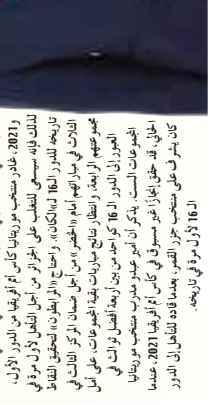 و2021، غادر منتخب موريتانيا كأس أمم أفريقيا من الدور الأول،
لذلك فإنه سيسعى للتغلب على الجزائر من أجل التأهل لأول مرة في
تاريخه للدور الـ16 لـ«الكان». واحتاج «المرابطون» لتحقيق النقاط
الثلاث في مباراتهم أمام «الخضر» من أجل ضمان المركز الثالث في
مجموعتهم الرابعة، وانتظار نتائج مباريات بقية المجموعات، على أمل
العبور إلى الدور الـ16 كواحد من بين أربعة أفضل ثوالث في
المجموعات الست. يذكر أن أمير عبدو مدرب منتخب موريتانيا
الحالي، قد حقق إنجازا غير مسبوق في كأس أمم أفريقيا 2021، عندما
كان يشرف على منتخب جزر القمر، بعدما قاده للتأهل إلى الدور
الـ16 لأول مرة في تاريخه.